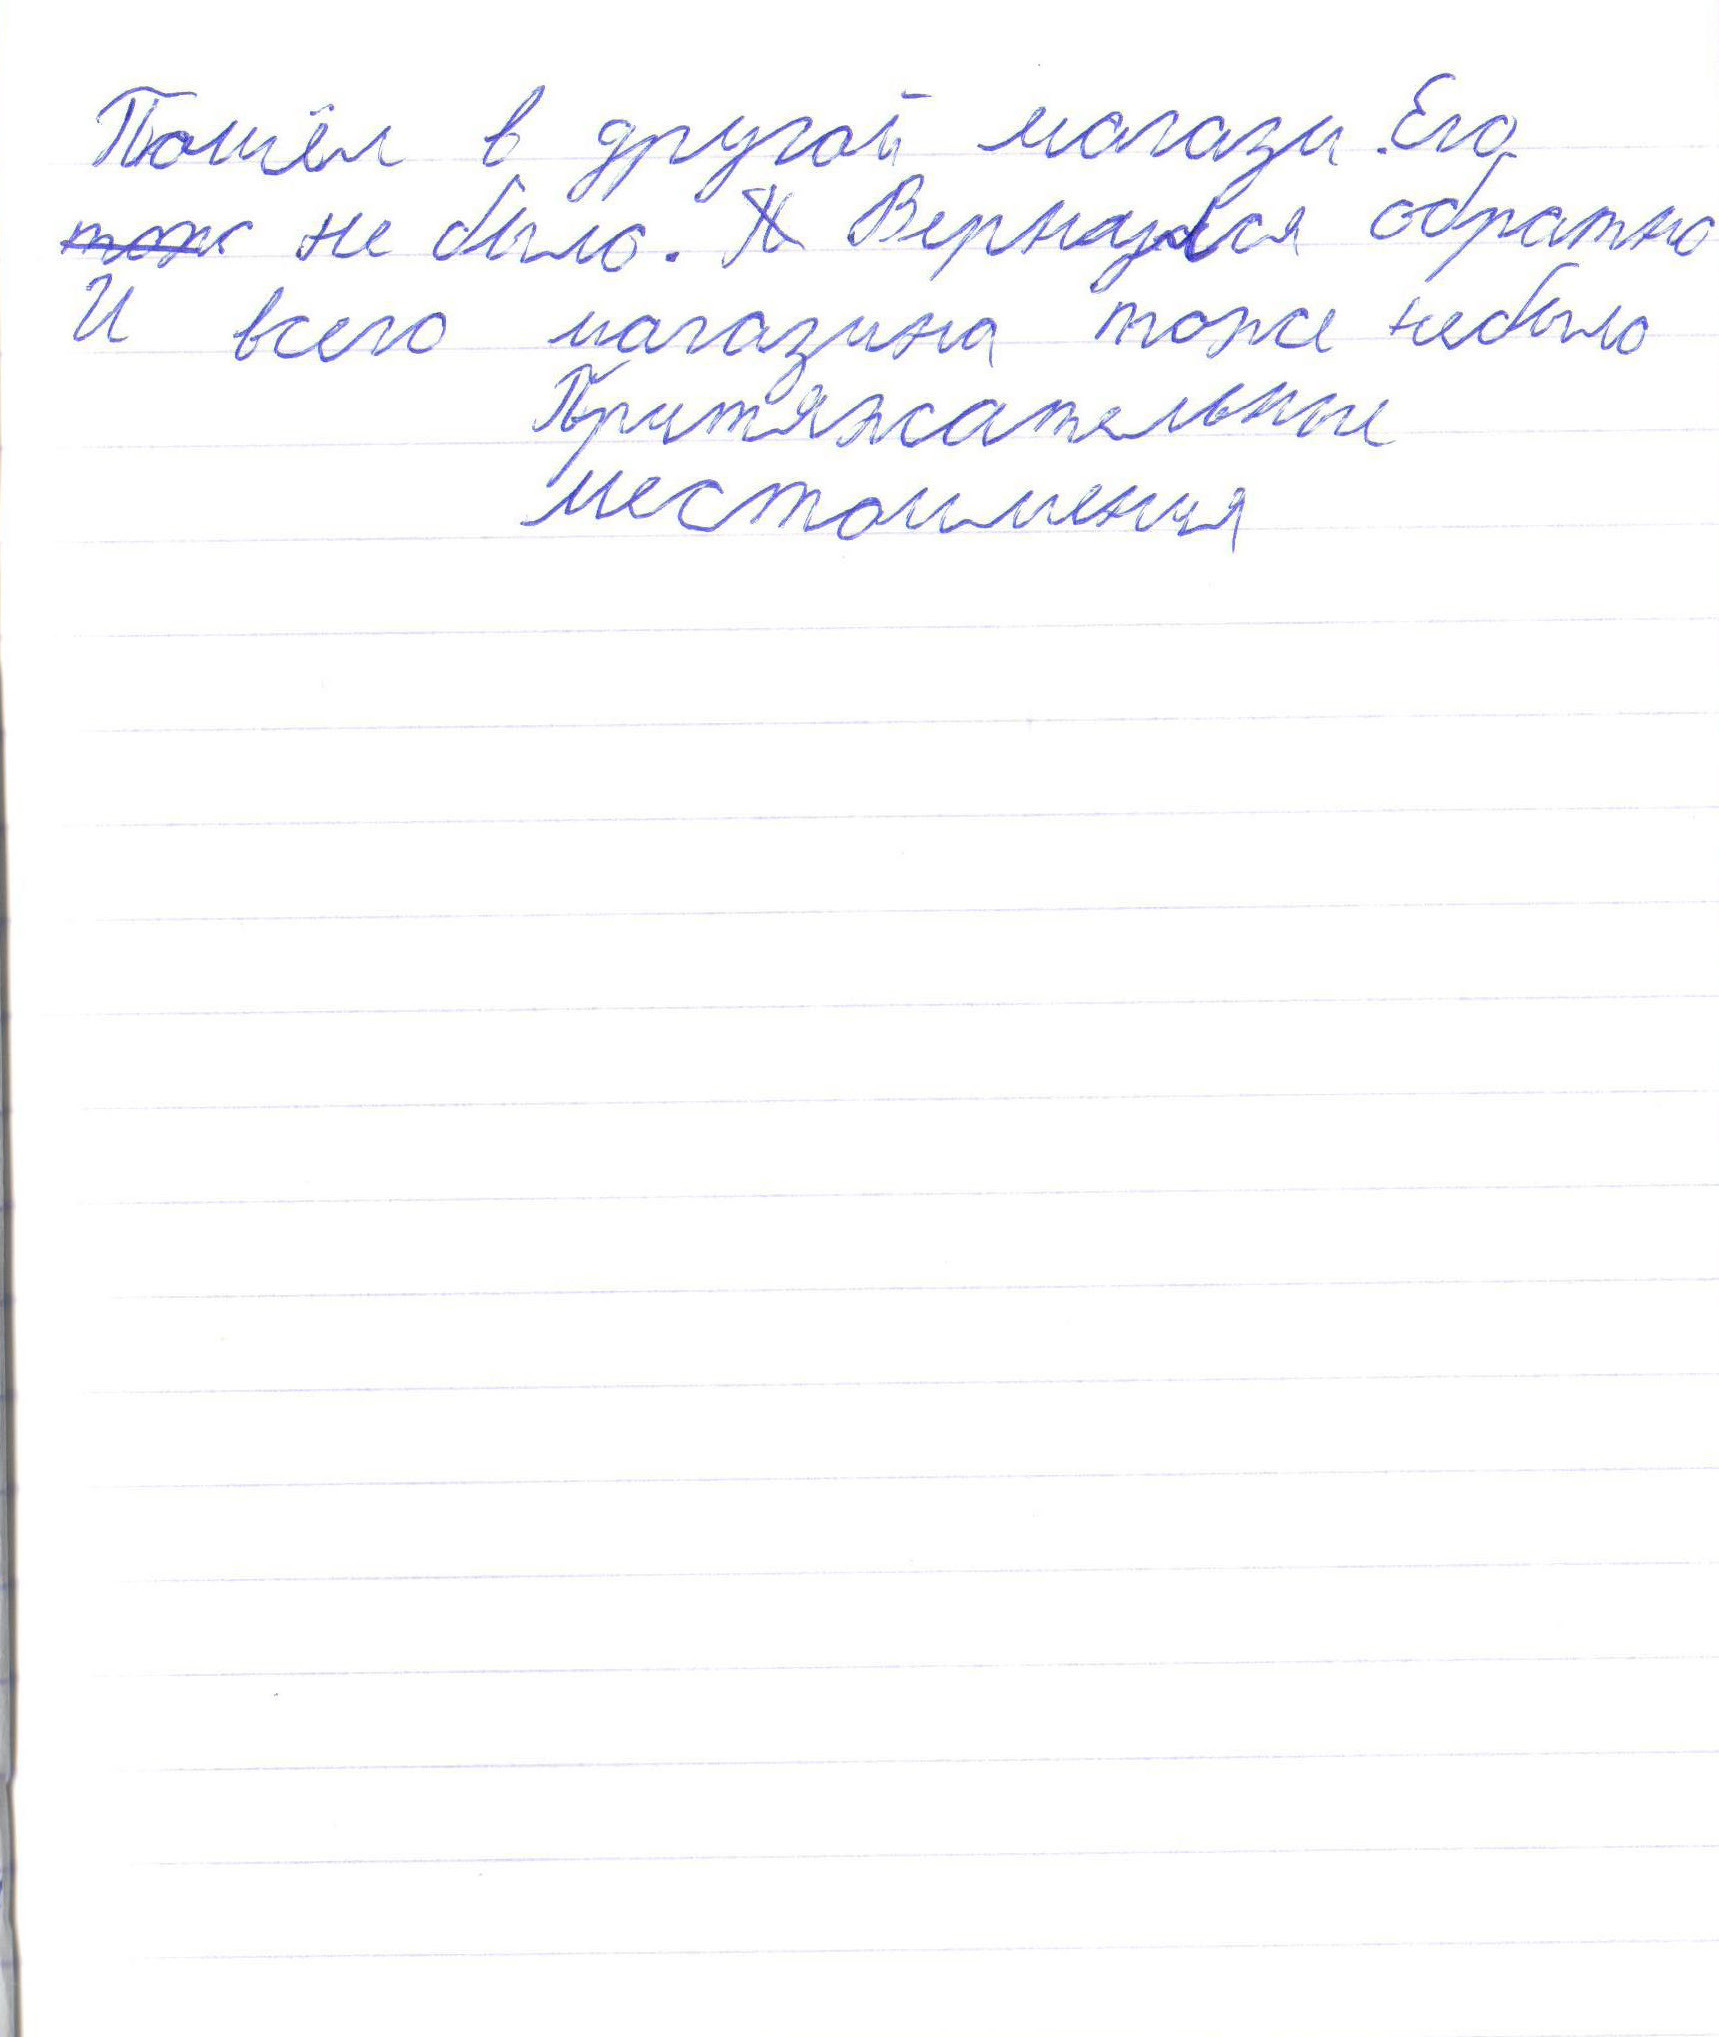 Пошёл в другой магази. Его
тож не было. Я Вернулся обратно
И всего магазина тоже небыло
Притяжательные
местоимения